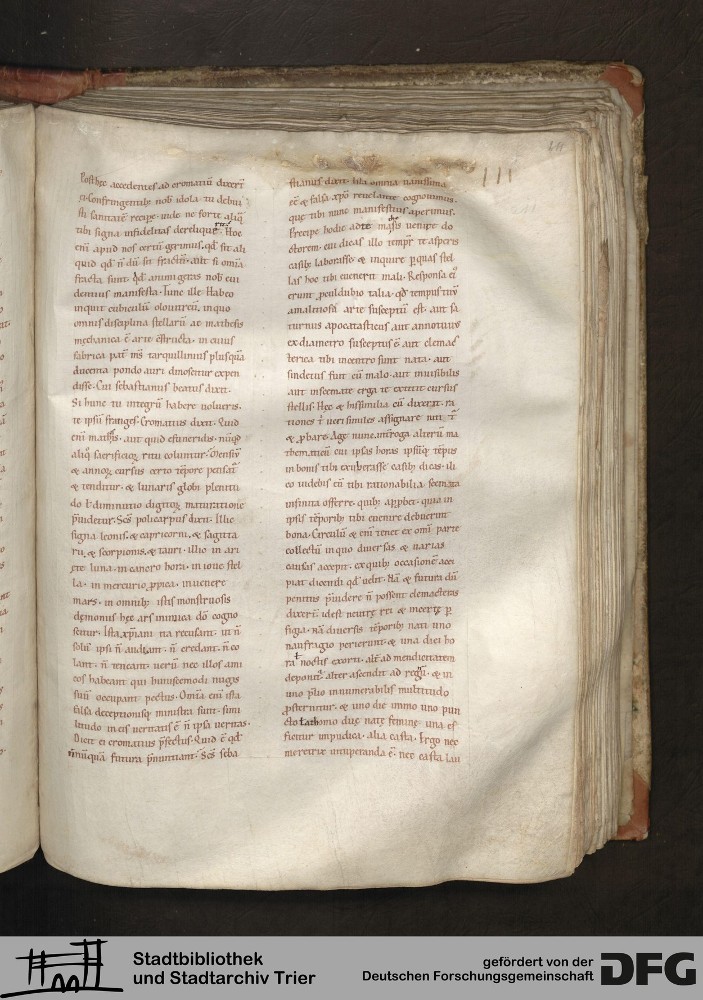 Post hęc accedentes ad cromatiū dixerт̄
cti. Confringentib; nob idola. tu debui
sti sanitatē recipe. uide ne forte aliq̄
tibi signa infidelitas dereliquᷓt. Hoc
eni apud nos certū gerimus. qd sit ali
quid qd n̄ dū sit fractū. aut si omīa
fracta sunt. qd animi gras nob eui
dentius manifesta. Tunc ille. Habeo
inquit cubiculū olouitreū. in quo
omnis disciplina stellarū ac mathesis
męchanica ē arte cstructa. in cuius
fabrica pat̄ ms̄ tarquillinius plusquā
ducenta pondo auri dinoscitur expen
disse. Cui sebastianus beatus dixit.
Si hunc tu integrū habere uolueris.
te ipsū franges. Cromatius dixit. Quid
eni mathesis. aut quid efimeridis. nūqd
aliq̄ sacrificioꝝ ritu coluntur. Mensiū
& annoꝝ cursus certo tēpore
& tenditur. & lunaris globi plenitu
do t̄ diminutio digitoꝝ maturitione
p̄uidetur. Scs policarpus dixit. Illic
signa leonis. & capricorni. & sagitta
rii. & scorpionis. & tauri. illic in ari
ete luna. in cancro hora. in ioue stel
la. in mercurio ꝓpica. in uenere
mars. in omnib; istis monstruosis
dęmonus hęc ars inimica dō cogno
scitur. Ista xp̄iani ita recusant. ut n̄
solū ipsi n̄ audiant. n̄ credant. n̄ co
lant. n̄ teneant. uerū nec illos ami
cos habeant qui huiuscemodi nugis
suū occupant pectus. Omīa eni ista
falsa deceptionisq; ministra sunt. simi
litudo in eis ueritatis ē n̄ ipsa ueritas.
Dicit ei cromatius p̄fectus. Quid ē qd
nūquā futura p̄nuntiant. Scs seba
stianus dixit. Illa omnia uanissima
eē & falsa. xp̄o reuelante cognouimus.
que tibi nunc manifestius aperimus.
Precipe hodie ad te mathesis uenire do
ctorem. cui dicas illo tempr̄ te asperis
casib; laborasse. & inquire ꝑ quas stel
las hoc tibi euenerit mali. Responsa ei
erunt ꝓculdubio talia. qd tempus tuū
amalinosa arte susceptū est. aut sa
turnus apocatasticus aut
ex diametro susceptus ē aut
terica tibi in centro sunt nata. aut
sindetus fuit cū malo. aut inuisibilis
aut insecante erga te extitit cursus
stellis. Hęc & his similia cū dixerit. ra
tiones t̄ uerisimiles assignare
& ꝓbare. Age nunc. introga alterū ma
thematicū cui ipsas horas ipsūq; tēpus
in bonis tibi exuberasse casib; dicas. ili
co uidebis cū tibi rationabilia
infinita offerre. quib; approbet. quia in
ipsis tēporib; tibi euenire debuerint
bona. Circulū & eni tenet ex omī parte
collectū in quo diuersas & uarias
causas accipit. ex quib; occasionē acci
piat dicendi qd uelit. Nā & futura dū
penitus p̄uidere n̄ possent
dixert̄. idest neutre rei & incerte p
fuga. Nā diuersis tēporib; nati uno
naufragio perierunt. & una diei ho
ra t̄ noctis exorti. alt̄ ad mendicitatem
deponit̄. alter ascendit ad regnū. & in
uno p̄lio innumerabilis multitudo
ꝓsternitur. & uno die immo uno pun
cto duę natę feminę. una ef
ficitur impudica. alia casta. Ergo nec
meretrix uituperanda ē. nec casta lau
Stadtbibliothek
und Stadtarchiv Trier
gefördert von der
Deutschen Forschungsgemeinschaft
DFG